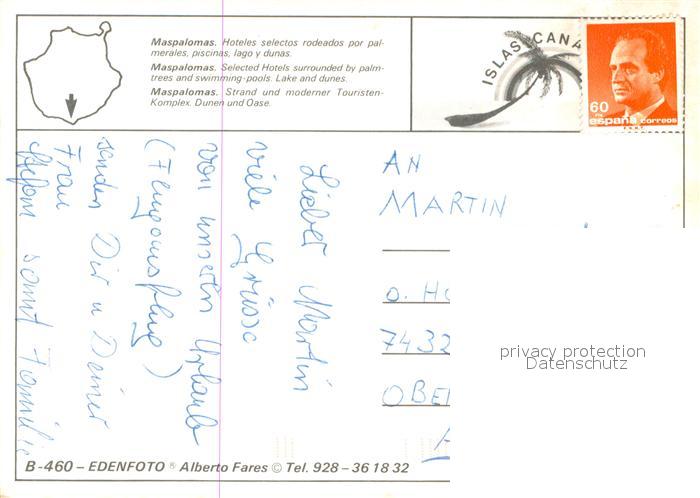 Maspalomas. Hoteles selectos rodeados por pal-
merales, piscinas, lago y dunas.
Maspalomas. Selected Hotels surrounded by palm-
trees and swimming-pools. Lake and dunes.
Maspalomas. Strand und moderner Touristen-
Komplex. Dunen und Oase.
ISLAS CANA
60
españa correos
Lieber Martin
viele Grüsse
von unserem Urlaub
senden Dir u Deiner
Frau
samt Familie
AN
MARTIN
O. HO
7432
OBE
privacy protection
Datenschutz
B-460 – EDENFOTO ® Alberto Fares © Tel. 928 – 36 18 32